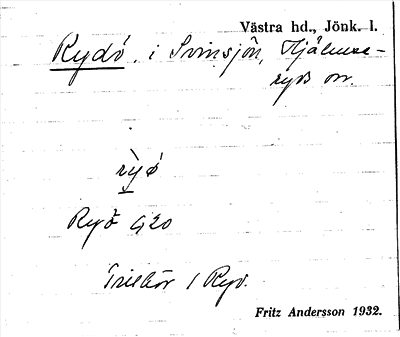 Västra hd., Jönk. l.
Rydö, i Svinsjön, Hjälmse-
ryds sn.
rỳø
Ryö G20
Tillhör 1 Ryd.
Fritz Andersson 1932.